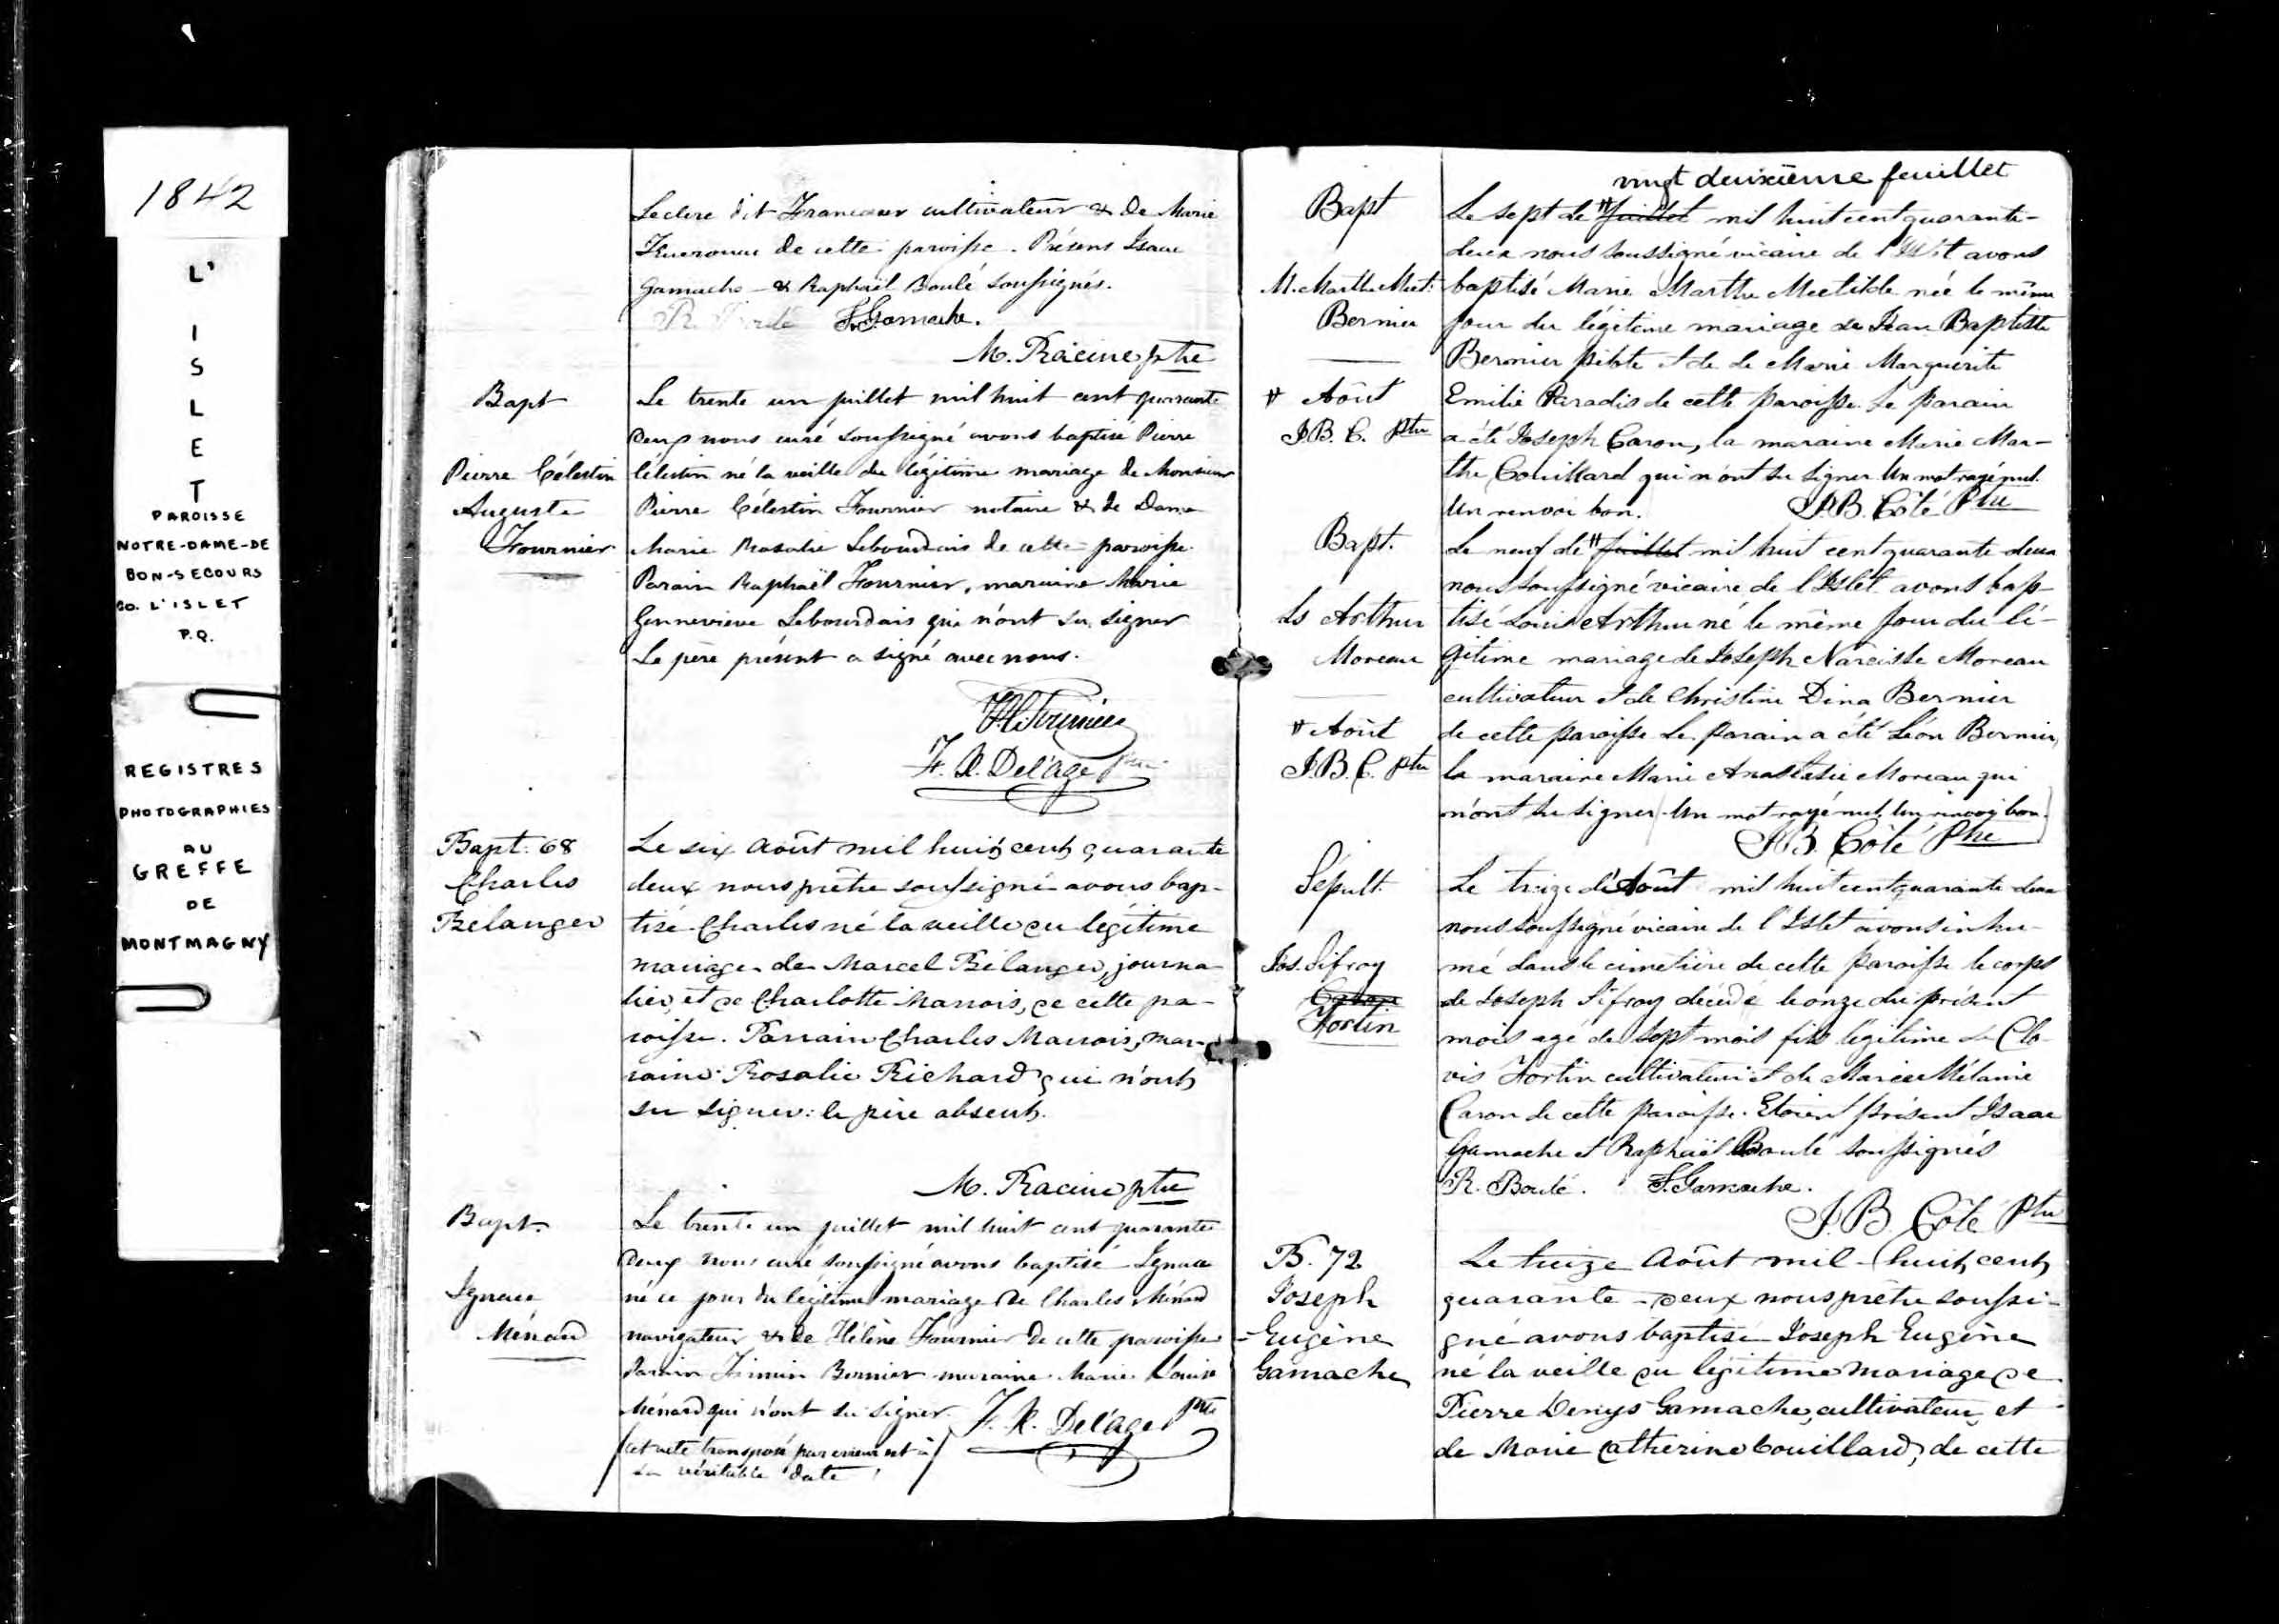 1842
L'
I
S
L
E
T
PAROISSE
NOTRE-DAME-DE
BON-SECOURS
CO. L'ISLET
P.Q.
REGISTRES
PHOTOGRAPHIES
AU
GREFFE
DE
MONTMAGNY
Leclere dit Francoeur cultivateur & de Marie
de cette paroisse. Présens Isaac
Gamache & Raphaël Boulé soussignés.
R. Boulé I. Gamache.
M. Racine ptre
Bapt
Pierre Célestin
Auguste
Fournier
Le trente un juillet mil huit cent quarante
deux nous curé soussigné avons baptisé Pierre
Célestin né la veille du légitime mariage de Monsieur
Pierre Célestin Fournier notaire & de Dame
Marie Rosalie Lebourdais de cette paroisse.
Parain Raphaël Fournier, maraine Marie
Gennevieve Lebourdais qui n'ont su signer
Le père présent a signé avec nous.
Fournier
F. X. Delâge ptre
Bapt. 68
Charles
Bélanger
Le six Août mil huit cent quarante
deux nous prêtre soussigné avons bap-
tisé Charles né la veille du légitime
mariage de Marcel Bélanger, journa
lier, et de Charlotte Marrois, de cette pa-
roisse. Parrain Charles Marrois, mar-
raine Rosalie Richard qui n'ont
su signer: le père absent.
M. Racine ptre
Bapt.
Ignace
Ménard
Le trente un juillet mil huit cent quarante
deux nous curé soussigné avons baptisé Ignace
né ce jour du légitime mariage de Charles Ménard
navigateur & de Hélène Fournier de cette paroisse
Parain Firmin Bernier maraine Marie Louise
Ménard qui n'ont su signer. F. X. Delâge ptre
(cet acte transposé par erreur est à
sa véritable date)
vingt deuxième feuillet
Bapt
M. Marthe Mect.
Bernier
# Août
J.B.C. Ptre
Le sept de # Juillet mil huit cent quarante-
deux nous soussigné vicaire de l'Islet avons
baptisé Marie Marthe Mectilde née le même
jour du légitime mariage de Jean Baptiste
Bernier pilote et de Marie Marguerite
Emilie Paradis de cette paroisse. Le parain
a été Joseph Caron, la maraine Marie Mar-
the Couillard qui n'ont su signer. Un mot rayé nul.
Un renvoi bon. J.B. Côté Ptre
Bapt.
Ls Arthur
Moreau
# Août
J.B.C. Ptre
Le neuf de # Juillet mil huit cent quarante deux
nous soussigné vicaire de l'Islet avons bap-
tisé Louis Arthur né le même jour du lé-
gitime mariage de Joseph Narcisse Moreau
cultivateur et de Christine Dina Bernier
de cette paroisse. Le parain a été Léon Bernier,
la maraine Marie Anastasie Moreau qui
n'ont su signer. Un mot rayé nul. Un renvoi bon.
J.B. Côté Ptre
Sépult.
Jos. Sifroy
Fortin
Le treize d'Août mil huit cent quarante deux
nous soussigné vicaire de l'Islet avons inhu-
mé dans le cimetière de cette paroisse le corps
de Joseph Sifroy décédé le onze du présent
mois agé de sept mois fils légitime de Clo-
vis Fortin cultivateur et de Marie Mélanie
Caron de cette paroisse. Etoient présent Isaac
Gamache et Raphaël Boulé soussignés
R. Boulé. I. Gamache.
J.B. Côté Ptre
B. 72
Joseph
Eugène
Gamache
Le treize Août mil huit cent
quarante-deux nous prêtre soussi-
gné avons baptisé Joseph Eugène
né la veille du légitime mariage de
Pierre Denys Gamache, cultivateur, et
de Marie Catherine Couillard, de cette